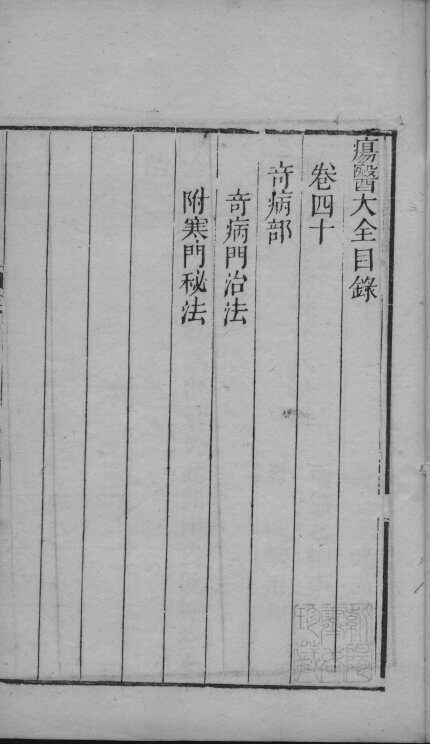 瘍醫大全目錄
卷四十
奇病部
奇病門治法
附寒門秘法